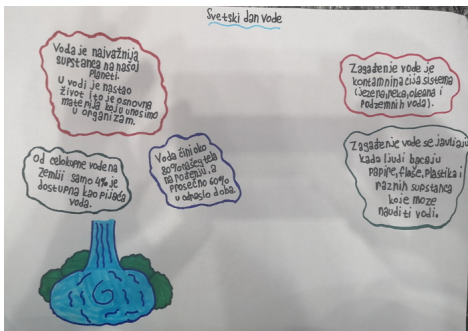 Svetski dan vode
Voda je najvažnija
supstanca na našoj
planeti.
U vodi je nastao
život i to je osnovna
materija koju unosimo
u organizam.
Od celokupne vode na
zemlji samo 4% je
dostupna kao pijaća
voda.
Voda čini oko
80% našeg tela
na rođenju, a
prosečno 60%
u odraslo doba.
Zagađenje vode je
kontaminacija sistema
(jezera, reka, okeana i
podzemnih voda).
Zagađenje vode se javljaju
kada ljudi bacaju
papire, flaše, plastika i
raznih supstanca
koje moze
nauditi vodi.